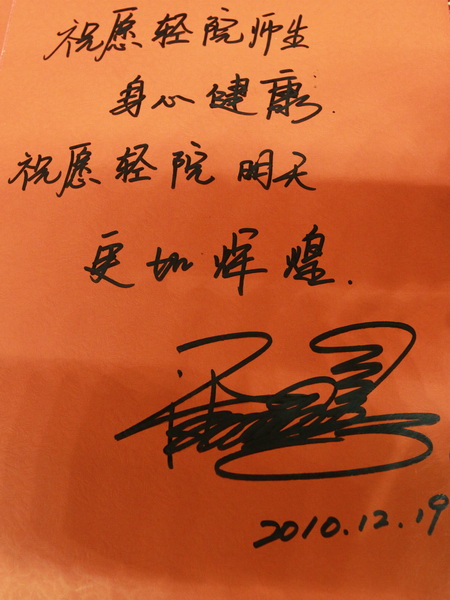 祝愿轻院师生
身心健康.
祝愿轻院明天
更加辉煌.
2010.12.19